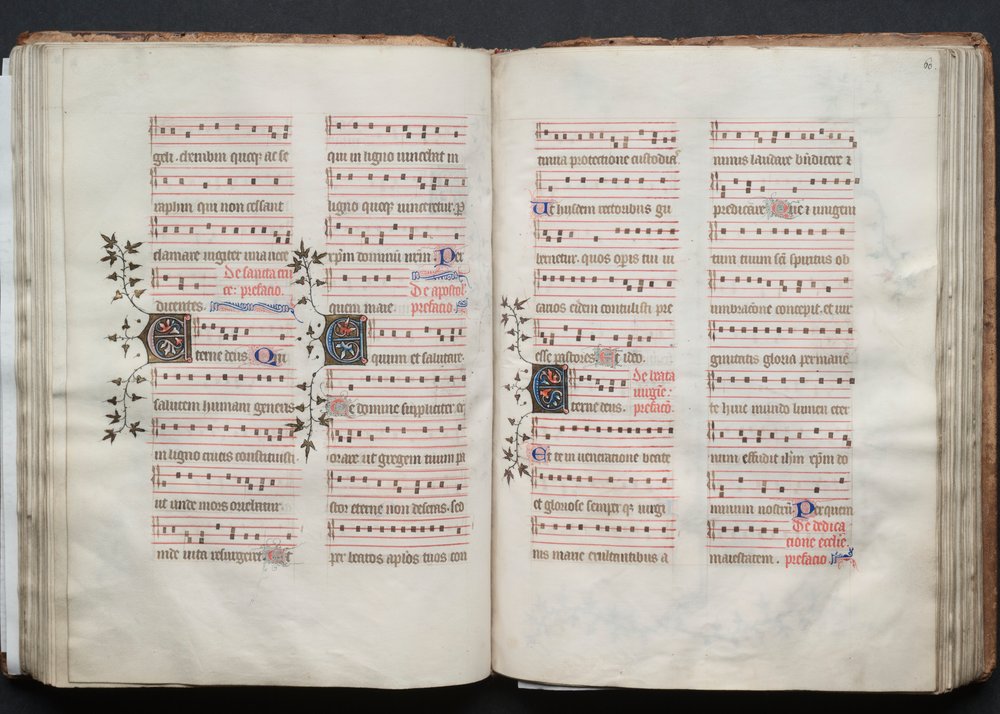 geli. cherubin quoqȝ ac se
raphin qui non cessant
clamare iugiter una uoce
De sancta cru
ce: prefacio.
dicentes.
Eterne deus. Qui
salutem humani generis
in ligno crucis constituisti.
ut unde mors oriebatur
inde uita resurgeret. Et
qui in ligno uincebat in
ligno quoqȝ uinceretur. p
xpm dominū nrm. Per
De apostol'
prefacio.
quem maie.
Equum et salutare.
Te domine suppliciter ex
orare ut gregem tuum pa
stor eterne non deseras. sed
per beatos aplos tuos con
60.
tinua protectione custodias.
Ut hijsdem rectoribus gu
bernetur. quos opis tui ui
carios eidem contulisti pre
esse pastores. Et ideo.
De beata
uirgīe:
prefacō.
Eterne deus.
Et te in ueneratione beate
et gloriose semper qȝ uirgi
nis marie exultantibus a
nimis laudare bndicere ⁊
predicare. Que ⁊ unigeni
tum tuum scī spiritus ob
umbracōne concepit. et uir
ginitatis gloria permanē
te huic mundo lumen eter
num effudit ihm xpm do
minum nostrū. Per quem
De dedica
cione ecclie.
maiestatem. prefacio.